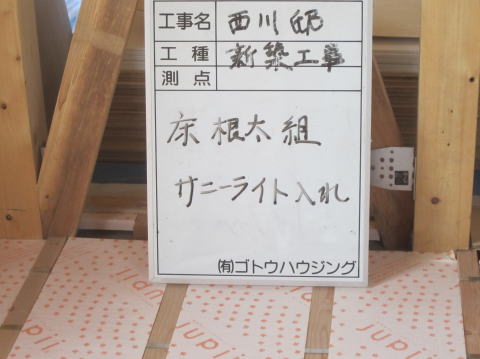 工事名 西川邸
工種 新築工事
測点
床根太組
サニーライト入れ
(有)ゴトウハウジング
jupii
jupii
jupii